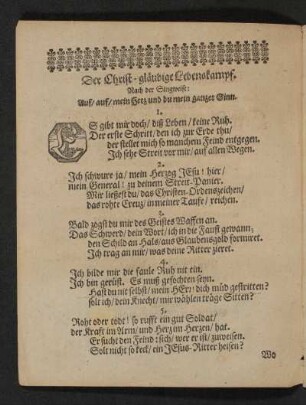 Der Christ-gläubige Lebenskampf.
Nach der Singweise:
Auf/ auf/ mein Hertz und du mein gantzer Sinn.
1.
ES gibt mir doch/ diß Leben/ keine Ruh.
Der erste Schritt/ den ich zur Erde thu/
der stellet mich so manchem Feind entgegen.
Ich sehe Streit vor mir/ auf allen Wegen.
2.
Ich schwure ja/ mein Hertzog JEsu! hier/
mein General! zu deinem Streit-Panier.
Mir liessest du/ das Christen-Ordenszeichen/
das rohte Creutz/ in meiner Tauffe/ reichen.
3.
Bald zogst du mir des Geistes Waffen an.
Das Schwerd/ dein Wort/ ich in die Faust gewann;
den Schild an Hals/ aus Glaubensgold formiret.
Ich trag an mir/ was deine Ritter zieret.
4.
Ich bilde mir die faule Ruh nit ein.
Ich bin gerüst. Es muß gefochten seyn.
Hast du nit selbst/ mein HErr/ dich müd gestritten?
solt ich/ dein Knecht/ mir wählen träge Sitten?
5.
Roht oder todt! so rufft ein gut Soldat/
der Krafft im Arm/ und Hertz im Hertzen/ hat.
Er sucht den Feind: sich/ wer er ist/ zuweisen.
Solt nicht so keck/ ein JEsus-Ritter heisen?
Wo